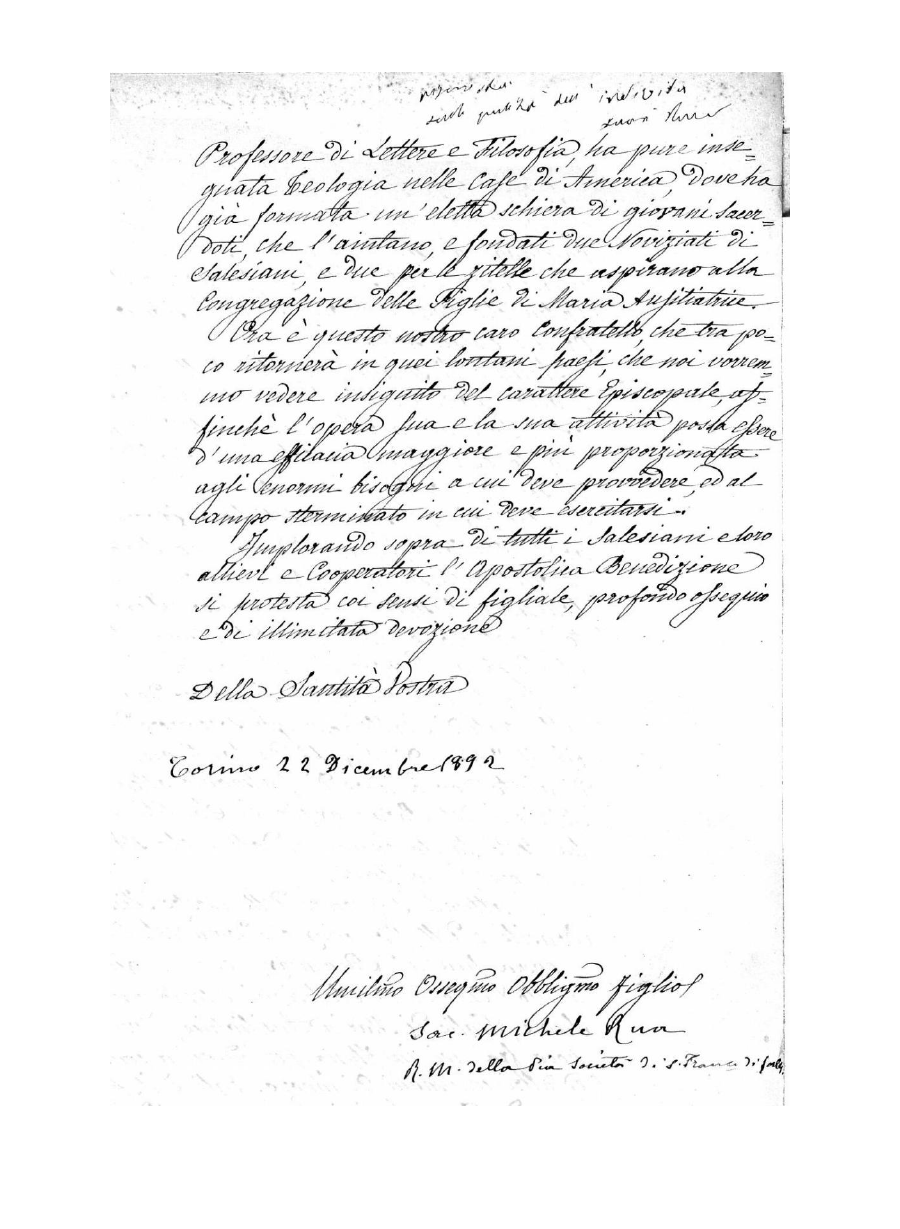 Professore di Lettere e Filosofia, ha pure inse=
gnata Teologia nelle Case di America, dove ha
già formata un'eletta schiera di giovani Sacer=
doti, che l'aiutano, e fondati due Noviziati di
Salesiani, e due per le zitelle che aspirano alla
Congregazione delle Figlie di Maria Ausiliatrice.
Ora è questo nostro caro Confratello, che tra po=
co ritornerà in quei lontani paesi, che noi vorrem=
mo vedere insignito del carattere Episcopale, af=
finchè l'opera sua e la sua attività possa essere
d'una efficacia maggiore e più proporzionata
agli enormi bisogni a cui deve provvedere, ed al
campo sterminato in cui deve esercitarsi.
Implorando sopra di tutti i Salesiani e loro
allievi e Cooperatori l'Apostolica Benedizione
si protesta coi sensi di figliale, profondo ossequio
e di illimitata devozione
Della Santità Vostra
Torino 22 Dicembre 1892
Umilmo Osseqmo Obbligmo figlio
Sac. Michele Rua
R. M. della Pia Società di S. Franc di Sales